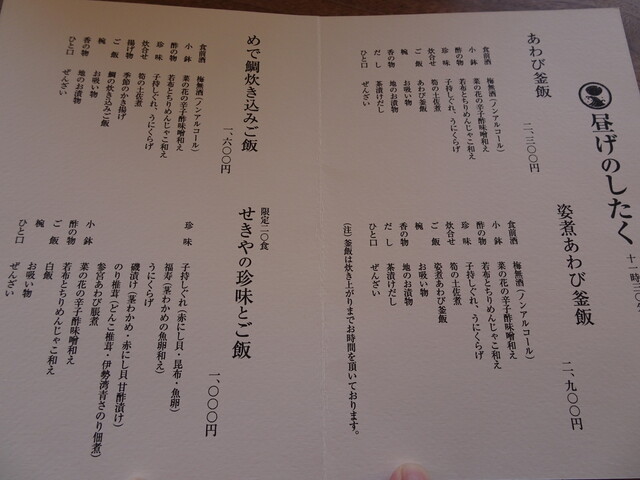 昼げのしたく
十一時三〇分
あわび釜飯
二、三〇〇円
食前酒 梅無酒（ノンアルコール）
小鉢 菜の花の辛子酢味噌和え
酢の物 若布とちりめんじゃこ和え
珍味 子持しぐれ、うにくらげ
炊合せ 筍の土佐煮
ご飯 あわび釜飯
椀 お吸い物
香の物 地のお漬物
だし 茶漬けだし
ひと口 ぜんざい
姿煮あわび釜飯
二、九〇〇円
食前酒 梅無酒（ノンアルコール）
小鉢 菜の花の辛子酢味噌和え
酢の物 若布とちりめんじゃこ和え
珍味 子持しぐれ、うにくらげ
炊合せ 筍の土佐煮
ご飯 姿煮あわび釜飯
椀 お吸い物
香の物 地のお漬物
だし 茶漬けだし
ひと口 ぜんざい
（注）釜飯は炊き上がりまでお時間を頂いております。
めで鯛炊き込みご飯
一、六〇〇円
食前酒 梅無酒（ノンアルコール）
小鉢 菜の花の辛子酢味噌和え
酢の物 若布とちりめんじゃこ和え
珍味 子持しぐれ、うにくらげ
炊合せ 筍の土佐煮
揚げ物 季節のかき揚げ
ご飯 鯛の炊き込みご飯
椀 お吸い物
香の物 地のお漬物
ひと口 ぜんざい
限定二〇食
せきやの珍味とご飯
一、〇〇〇円
珍味 子持しぐれ（赤にし貝・昆布・魚卵）
福寿（茎わかめの魚卵和え）
うにくらげ
磯漬け（茎わかめ・赤にし貝 甘酢漬け）
のり椎茸（どんこ椎茸・伊勢湾青さのり佃煮）
参宮あわび脹煮
小鉢 菜の花の辛子酢味噌和え
酢の物 若布とちりめんじゃこ和え
ご飯 白飯
椀 お吸い物
ひと口 ぜんざい